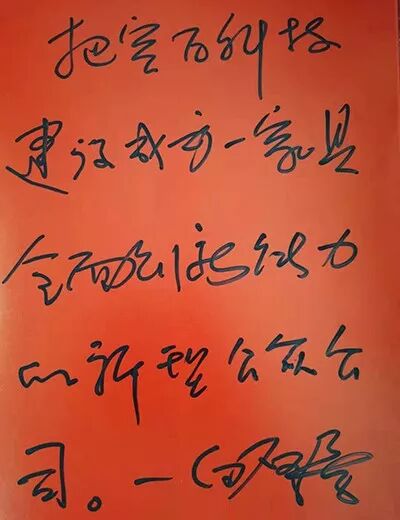 把空百科技
建设成为一家具
全面创新能力
的新型公众公
司。一